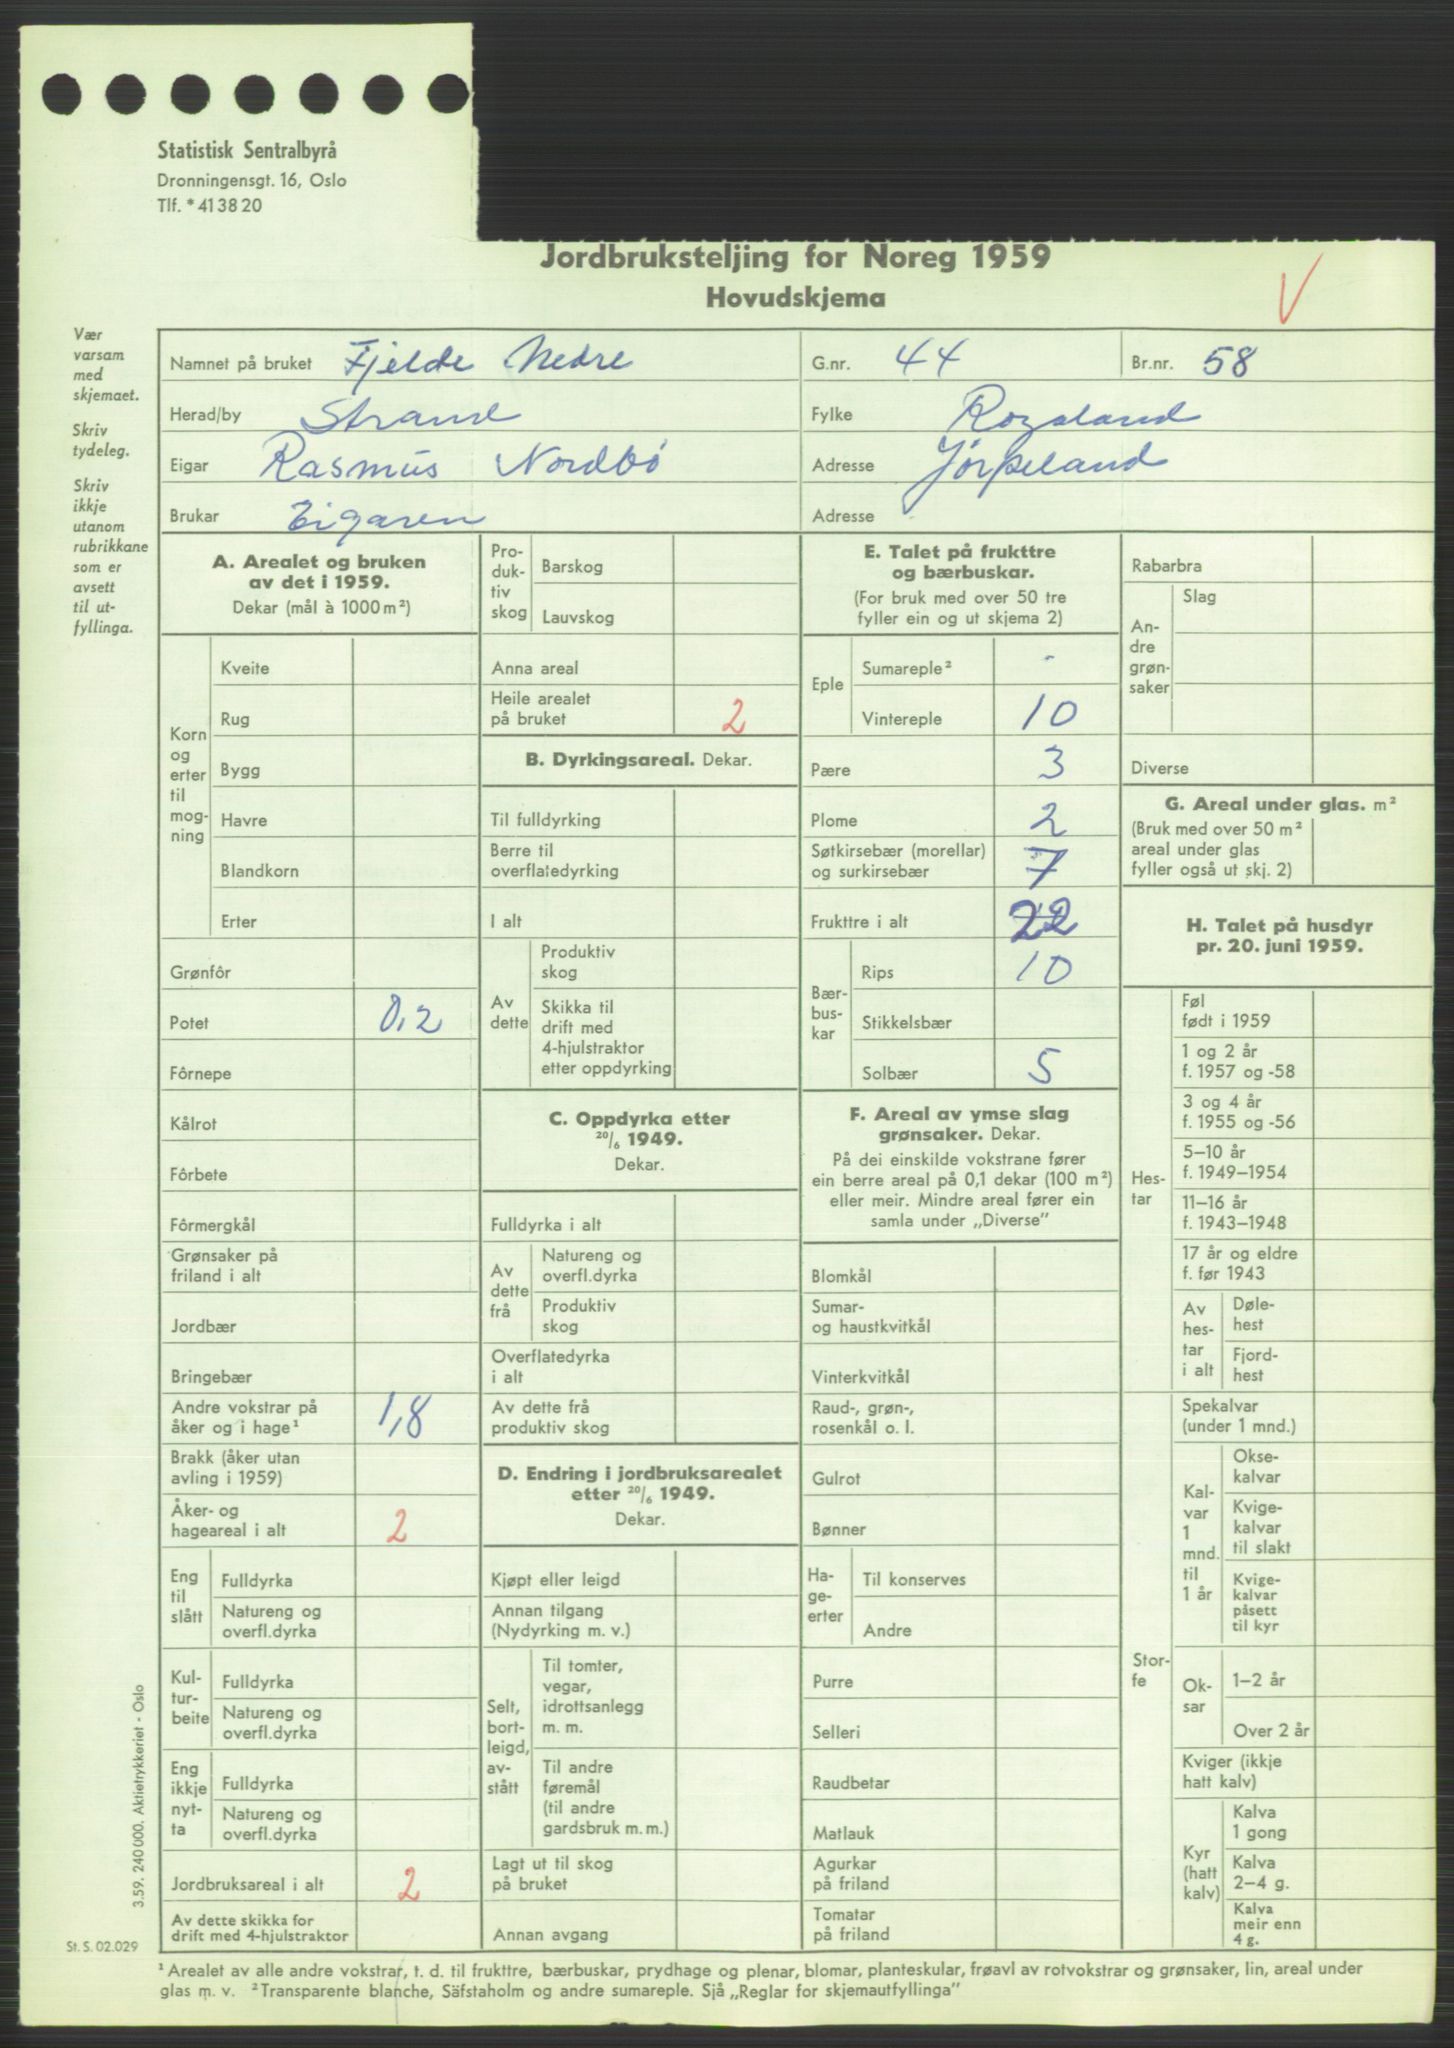 Statistisk Sentralbyrå
Dronningensgt. 16, Oslo
Tlf. * 41 38 20
Jordbruksteljing for Noreg 1959
Hovudskjema
V
Vær
varsam
med
skjemaet.
Skriv
tydeleg.
Skriv
ikkje
utanom
rubrikkane
som er
avsett
til ut-
fyllinga.
Namnet på bruket Fjelde Nedre G.nr. 44 Br.nr. 58
Herad/by Strand Fylke Rogaland
Eigar Rasmus Nordbö Adresse Jörpeland
Brukar Eigaren Adresse
A. Arealet og bruken
av det i 1959.
Dekar (mål à 1000 m²)
Korn
og
erter
til
mog-
ning
Kveite
Rug
Bygg
Havre
Blandkorn
Erter
Grønfôr
Potet 0,2
Fôrnepe
Kålrot
Fôrbete
Fôrmergkål
Grønsaker på
friland i alt
Jordbær
Bringebær
Andre vokstrar på
åker og i hage¹ 1,8
Brakk (åker utan
avling i 1959)
Åker- og
hageareal i alt 2
Eng
til
slått
Fulldyrka
Natureng og
overfl.dyrka
Kul-
tur-
beite
Fulldyrka
Natureng og
overfl.dyrka
Eng
ikkje
nyt-
ta
Fulldyrka
Natureng og
overfl.dyrka
Jordbruksareal i alt 2
Av dette skikka for
drift med 4-hjulstraktor
Pro-
duk-
tiv
skog
Barskog
Lauvskog
Anna areal
Heile arealet
på bruket 2
B. Dyrkingsareal. Dekar.
Til fulldyrking
Berre til
overflatedyrking
I alt
Av
dette
Produktiv
skog
Skikka til
drift med
4-hjulstraktor
etter oppdyrking
C. Oppdyrka etter
20/6 1949.
Dekar.
Fulldyrka i alt
Av
dette
frå
Natureng og
overfl.dyrka
Produktiv
skog
Overflatedyrka
i alt
Av dette frå
produktiv skog
D. Endring i jordbruksarealet
etter 20/6 1949.
Dekar.
Kjøpt eller leigd
Annan tilgang
(Nydyrking m. v.)
Selt,
bort-
leigd,
av-
stått
Til tomter,
vegar,
idrottsanlegg
m. m.
Til andre
føremål
(til andre
gardsbruk m. m.)
Lagt ut til skog
på bruket
Annan avgang
E. Talet på frukttre
og bærbuskar.
(For bruk med over 50 tre
fyller ein og ut skjema 2)
Eple
Sumareple² -
Vintereple 10
Pære 3
Plome 2
Søtkirsebær (morellar)
og surkirsebær 7
Frukttre i alt 22
Bær-
bus-
kar
Rips 10
Stikkelsbær
Solbær 5
F. Areal av ymse slag
grønsaker. Dekar.
På dei einskilde vokstrane fører
ein berre areal på 0,1 dekar (100 m²)
eller meir. Mindre areal fører ein
samla under „Diverse”
Blomkål
Sumar-
og haustkvitkål
Vinterkvitkål
Raud-, grøn-,
rosenkål o. l.
Gulrot
Bønner
Ha-
ge-
erter
Til konserves
Andre
Purre
Selleri
Raudbetar
Matlauk
Agurkar
på friland
Tomatar
på friland
Rabarbra
An-
dre
grøn-
saker
Slag
Diverse
G. Areal under glas. m²
(Bruk med over 50 m²
areal under glas
fyller også ut skj. 2)
H. Talet på husdyr
pr. 20. juni 1959.
Hes-
tar
Føl
født i 1959
1 og 2 år
f. 1957 og -58
3 og 4 år
f. 1955 og -56
5–10 år
f. 1949–1954
11–16 år
f. 1943–1948
17 år og eldre
f. før 1943
Av
hes-
tar
i alt
Døle-
hest
Fjord-
hest
Stor-
fe
Spekalvar
(under 1 mnd.)
Kal-
var
1
mnd.
til
1 år
Okse-
kalvar
Kvige-
kalvar
til slakt
Kvige-
kalvar
påsett
til kyr
Ok-
sar
1–2 år
Over 2 år
Kviger (ikkje
hatt kalv)
Kyr
(hatt
kalv)
Kalva
1 gong
Kalva
2–4 g.
Kalva
meir enn
4 g.
3.59. 240 000. Aktietrykkeriet - Oslo
St. S. 02.029
¹ Arealet av alle andre vokstrar, t. d. til frukttre, bærbuskar, prydhage og plenar, blomar, planteskular, frøavl av rotvokstrar og grønsaker, lin, areal under
glas m. v. ² Transparente blanche, Säfstaholm og andre sumareple. Sjå „Reglar for skjemautfyllinga”